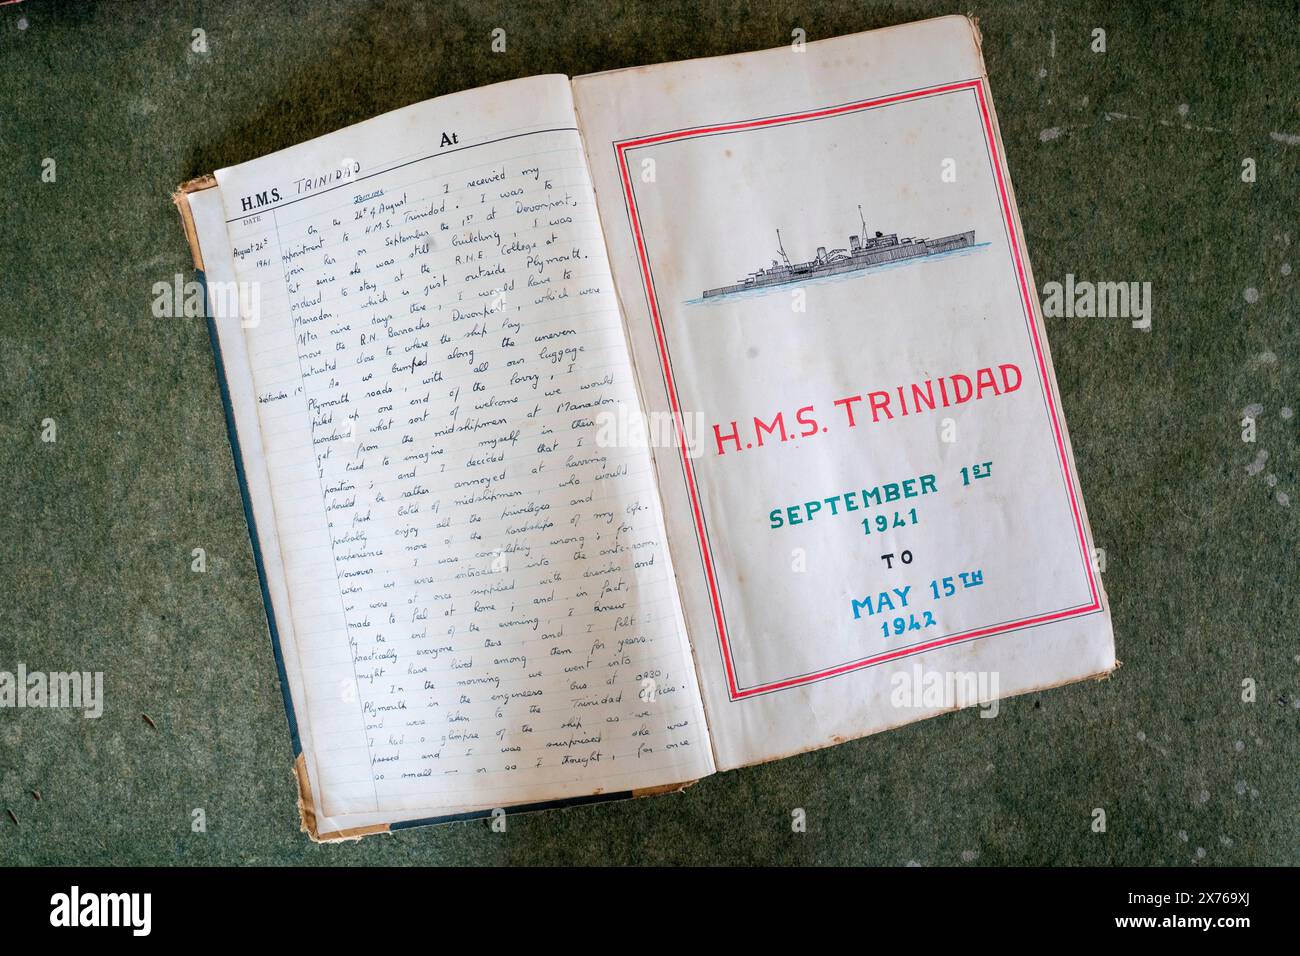 H.M.S. TRINIDAD At
DATE
Joining
August 24th
1941
On the 24th of August I received my
appointment to H.M.S. Trinidad. I was to
join her on September the 1st at Devonport,
but since she was still building, I was
ordered to stay at the R.N.E. College at
Manadon, which is just outside Plymouth.
After nine days there, I would have to
move the R.N. Barracks Devonport, which were
situated close to where the ship lay.
September 1st
As we bumped along the uneven
Plymouth roads, with all our luggage
piled up one end of the lorry, I
wondered what sort of welcome we would
get from the midshipmen at Manadon.
I tried to imagine myself in their
position; and I decided that I
should be rather annoyed at having
a fresh batch of midshipmen, who would
probably enjoy all the privileges and
experience none of the hardships of my life.
However, I was completely wrong; for
when we were introduced into the ante-room,
we were at once supplied with drinks and
made to feel at home; and in fact,
by the end of the evening, I knew
practically everyone there, and I felt I
might have lived among them for years.
In the morning we went into
Plymouth in the engineers' bus at 0830,
and were taken to the Trinidad offices.
I had a glimpse of the ship as we
passed and I was surprised she was
so small — or so I thought, for once
H.M.S. TRINIDAD
SEPTEMBER 1ST
1941
TO
MAY 15TH
1942
alamy
Image ID: 2X769XJ
www.alamy.com